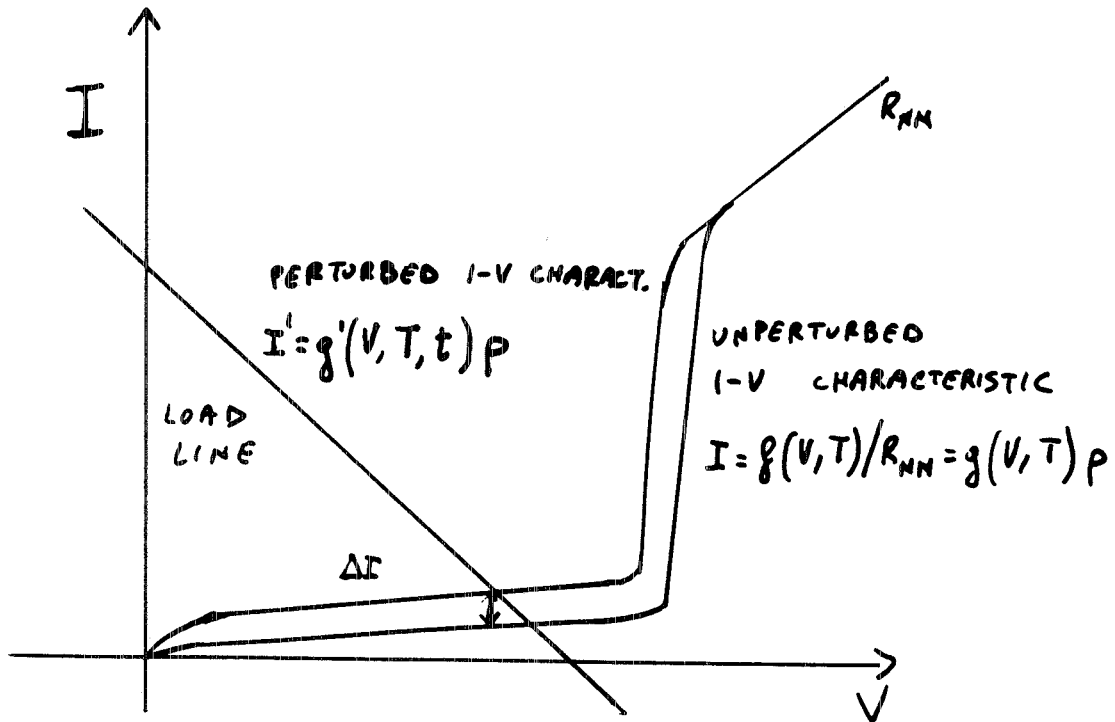 I
R_NN
PERTURBED I-V CHARACT.
I' = g'(V, T, t) p
UNPERTURBED
I-V CHARACTERISTIC
I = g(V, T)/R_NN = g(V, T) p
LOAD
LINE
ΔI
V